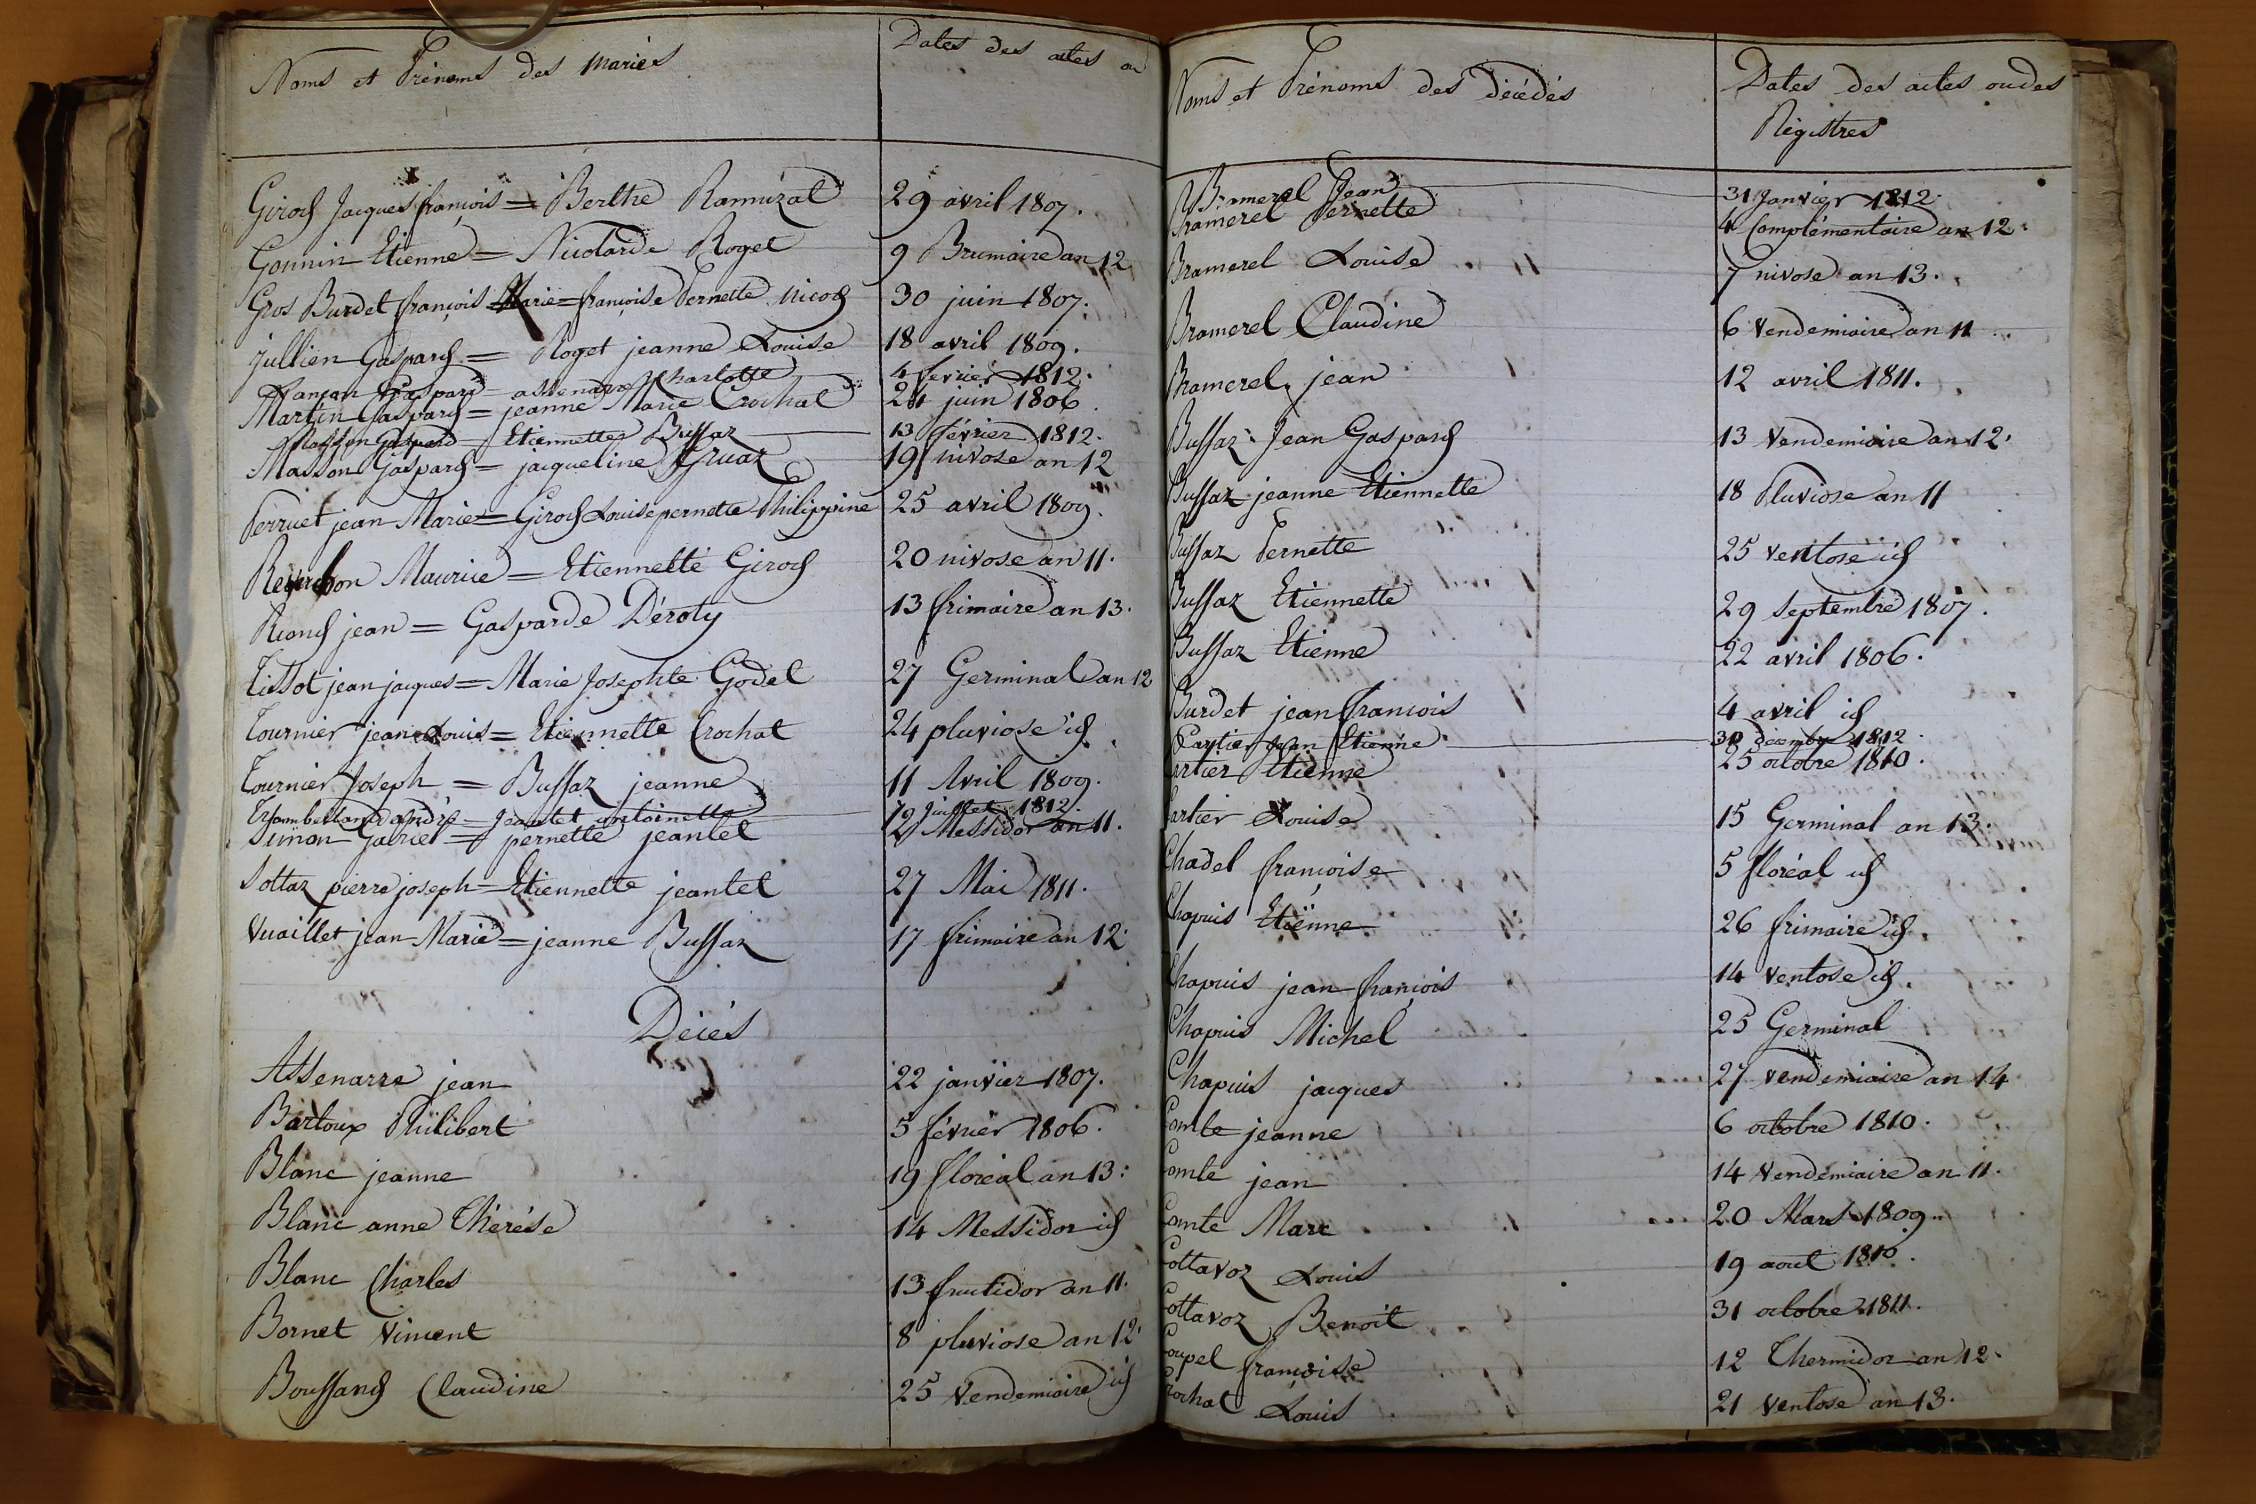 Noms et Prénoms des mariés
Dates des actes ou
Girod Jacques françois = Berthe Ramuzat 29 avril 1807.
Gonnin Etienne = Nicolarde Roget 9 Brumaire an 12
Gros Burdet françois = Marie = françoise Pernette Nicod 30 juin 1807.
Jullien Gaspard = Roget jeanne Louise 18 avril 1809.
Gaspard = assenarre Charlotte 4 fevrier 1812.
Martin Gaspard = jeanne Marie Crochat 24 juin 1806
Masson Gaspard = Etiennette Buffaz 13 février 1812.
Masson Gaspard = jacqueline Gruaz 19 nivose an 12
Perruet jean Marie = Girod Louise pernette Philippine 25 avril 1809.
Reverchon Maurice = Etiennette Girod 20 nivose an 11.
Riand jean = Gasparde Déroty 13 frimaire an 13.
Tissot jean jacques = Marie Josephte Godet 27 Germinal an 12
Tournier jean Louis = Etiennette Crochat 24 pluviose id
Tournier Joseph = Buffaz jeanne 11 Avril 1809.
andré = Jeantet antoinette Juillet 1812.
Simon Gabriel = pernette jeantet 12 Messidor an 11.
Sottaz pierre joseph = Etiennette jeantet 27 Mai 1811.
Vuaillet jean Marie = jeanne Buffaz 17 frimaire an 12
Décés
Assenarre jean 22 janvier 1807.
Bartoux Philibert 5 février 1806.
Blanc jeanne 19 floréal an 13.
Blanc anne Thérése 14 Messidor id
Blanc Charles 13 fructidor an 11.
Bornet Vincent 8 pluviose an 12
Bouffand Claudine 25 Vendemiaire id
Noms et Prénoms des décédés
Dates des actes ou des
Régistres
Bramerel Jean 31 Janvier 1812.
Bramerel Pernette 4 Complémentaire an 12.
Bramerel Louise 7 nivose an 13.
Bramerel Claudine 6 Vendemiaire an 11
Bramerel jean 12 avril 1811.
Buffaz Jean Gaspard 13 Vendemiaire an 12.
Buffaz jeanne Etiennette 18 Pluviose an 11
Buffaz Pernette 25 ventose id
Buffaz Etiennette 29 septembre 1807.
Buffaz Etienne 22 avril 1806.
Burdet jean françois 4 avril id
Cartier Jean Etienne 30 decembre 1812.
Cartier Etienne 25 octobre 1810.
Cartier Louise 15 Germinal an 13.
Chadel françoise 5 floréal id
Chapuis Etienne 26 frimaire id.
Chapuis jean françois 14 ventose id.
Chapuis Michel 25 Germinal
Chapuis jacques 27 vendemiaire an 14
Comte jeanne 6 octobre 1810.
Comte jean 14 Vendémiaire an 11.
Comte Marc 20 Mars 1809.
Cottavoz Louis 19 aout 1810.
Cottavoz Benoit 31 octobre 1811.
Coupel françoise 12 Thermidor an 12.
Crochat Louis 21 Ventose an 13.